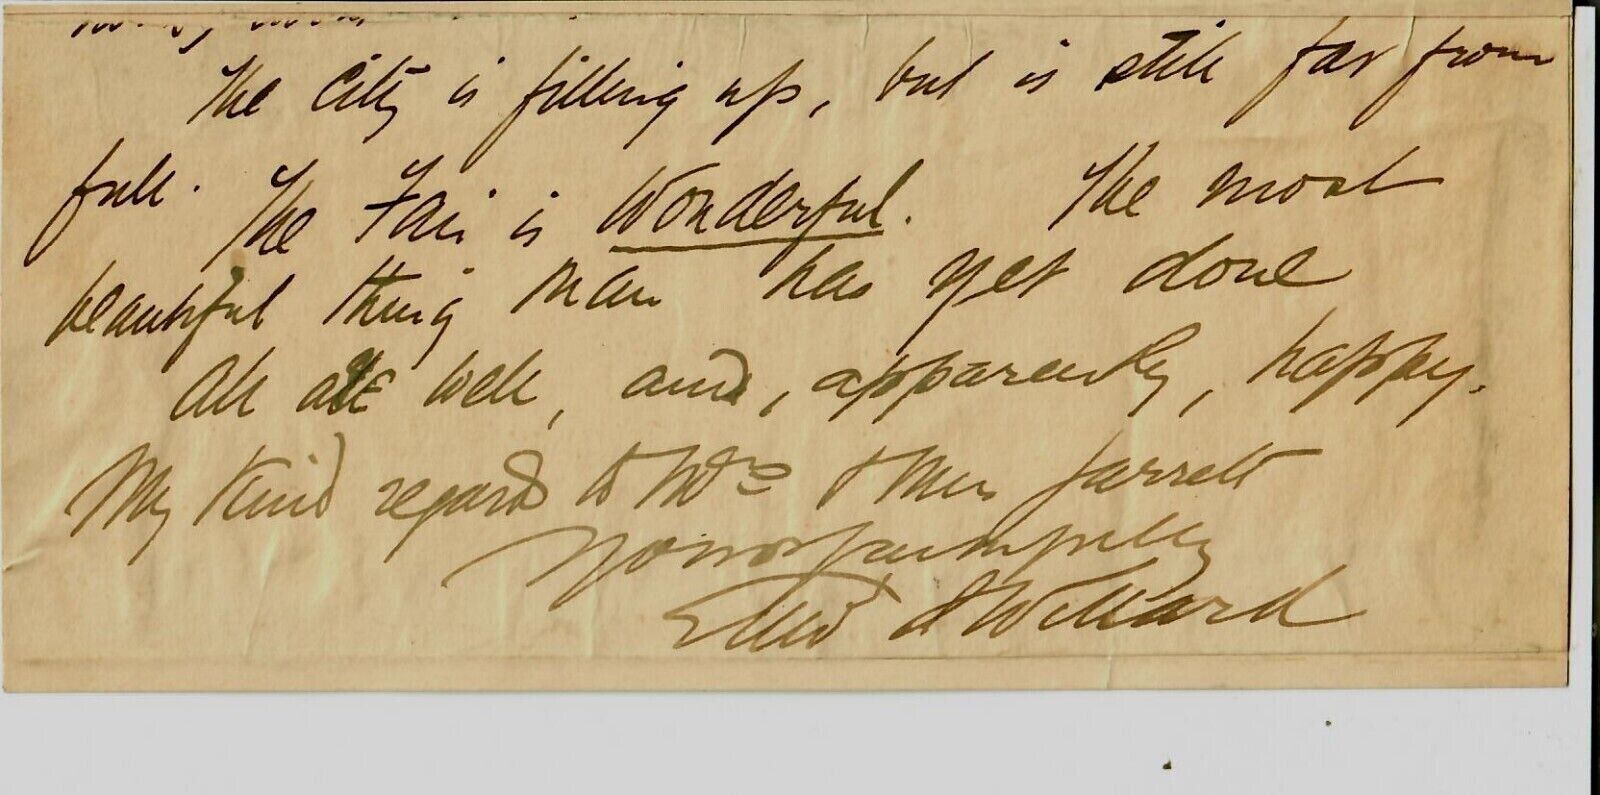 The City is filling up, but is still far from
full. The Fair is Wonderful. The most
beautiful thing man has yet done
All are well, and, apparently, happy.
My Kind regards to Mrs & Miss Jarrett
Yours faithfully
Edwd S Willard